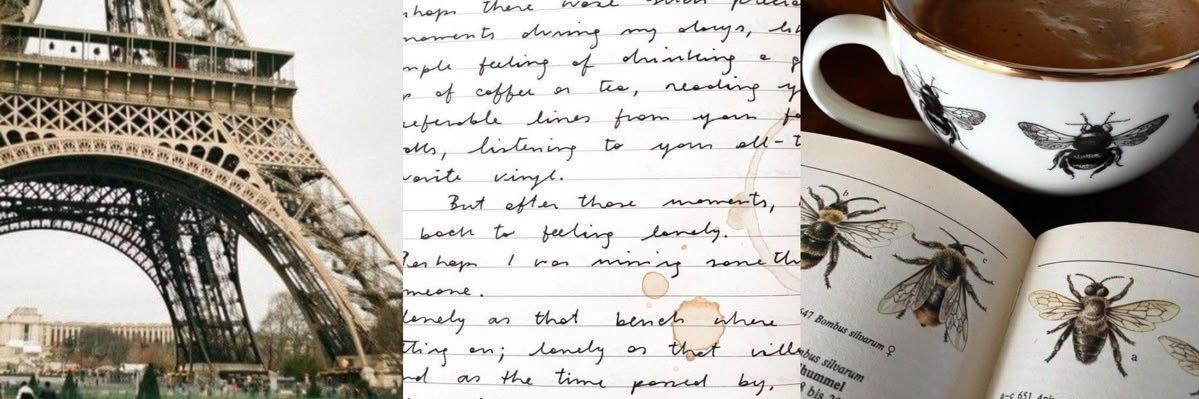 there were such
moments during my days,
feeling of drinking a
of coffee or tea, reading
lines from your
listening to your all-
vinyl.
But after those moments,
back to feeling lonely.
Perhaps I was missing
lonely as that bench where
on; lonely as that
as the time passed by.
647 Bombus silvarum ♀
silvarum
hummel
bis
b
c
a
a-c 651